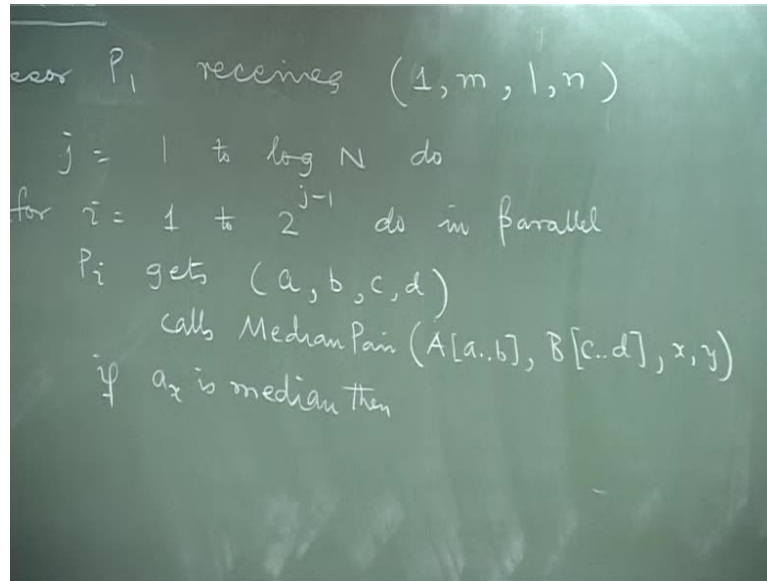 essor P₁ receives (1, m, 1, n)
j = 1 to log N do
for i = 1 to 2^{j-1} do in parallel
Pᵢ gets (a, b, c, d)
calls MedianPair (A[a..b], B[c..d], x, y)
if aₓ is median then